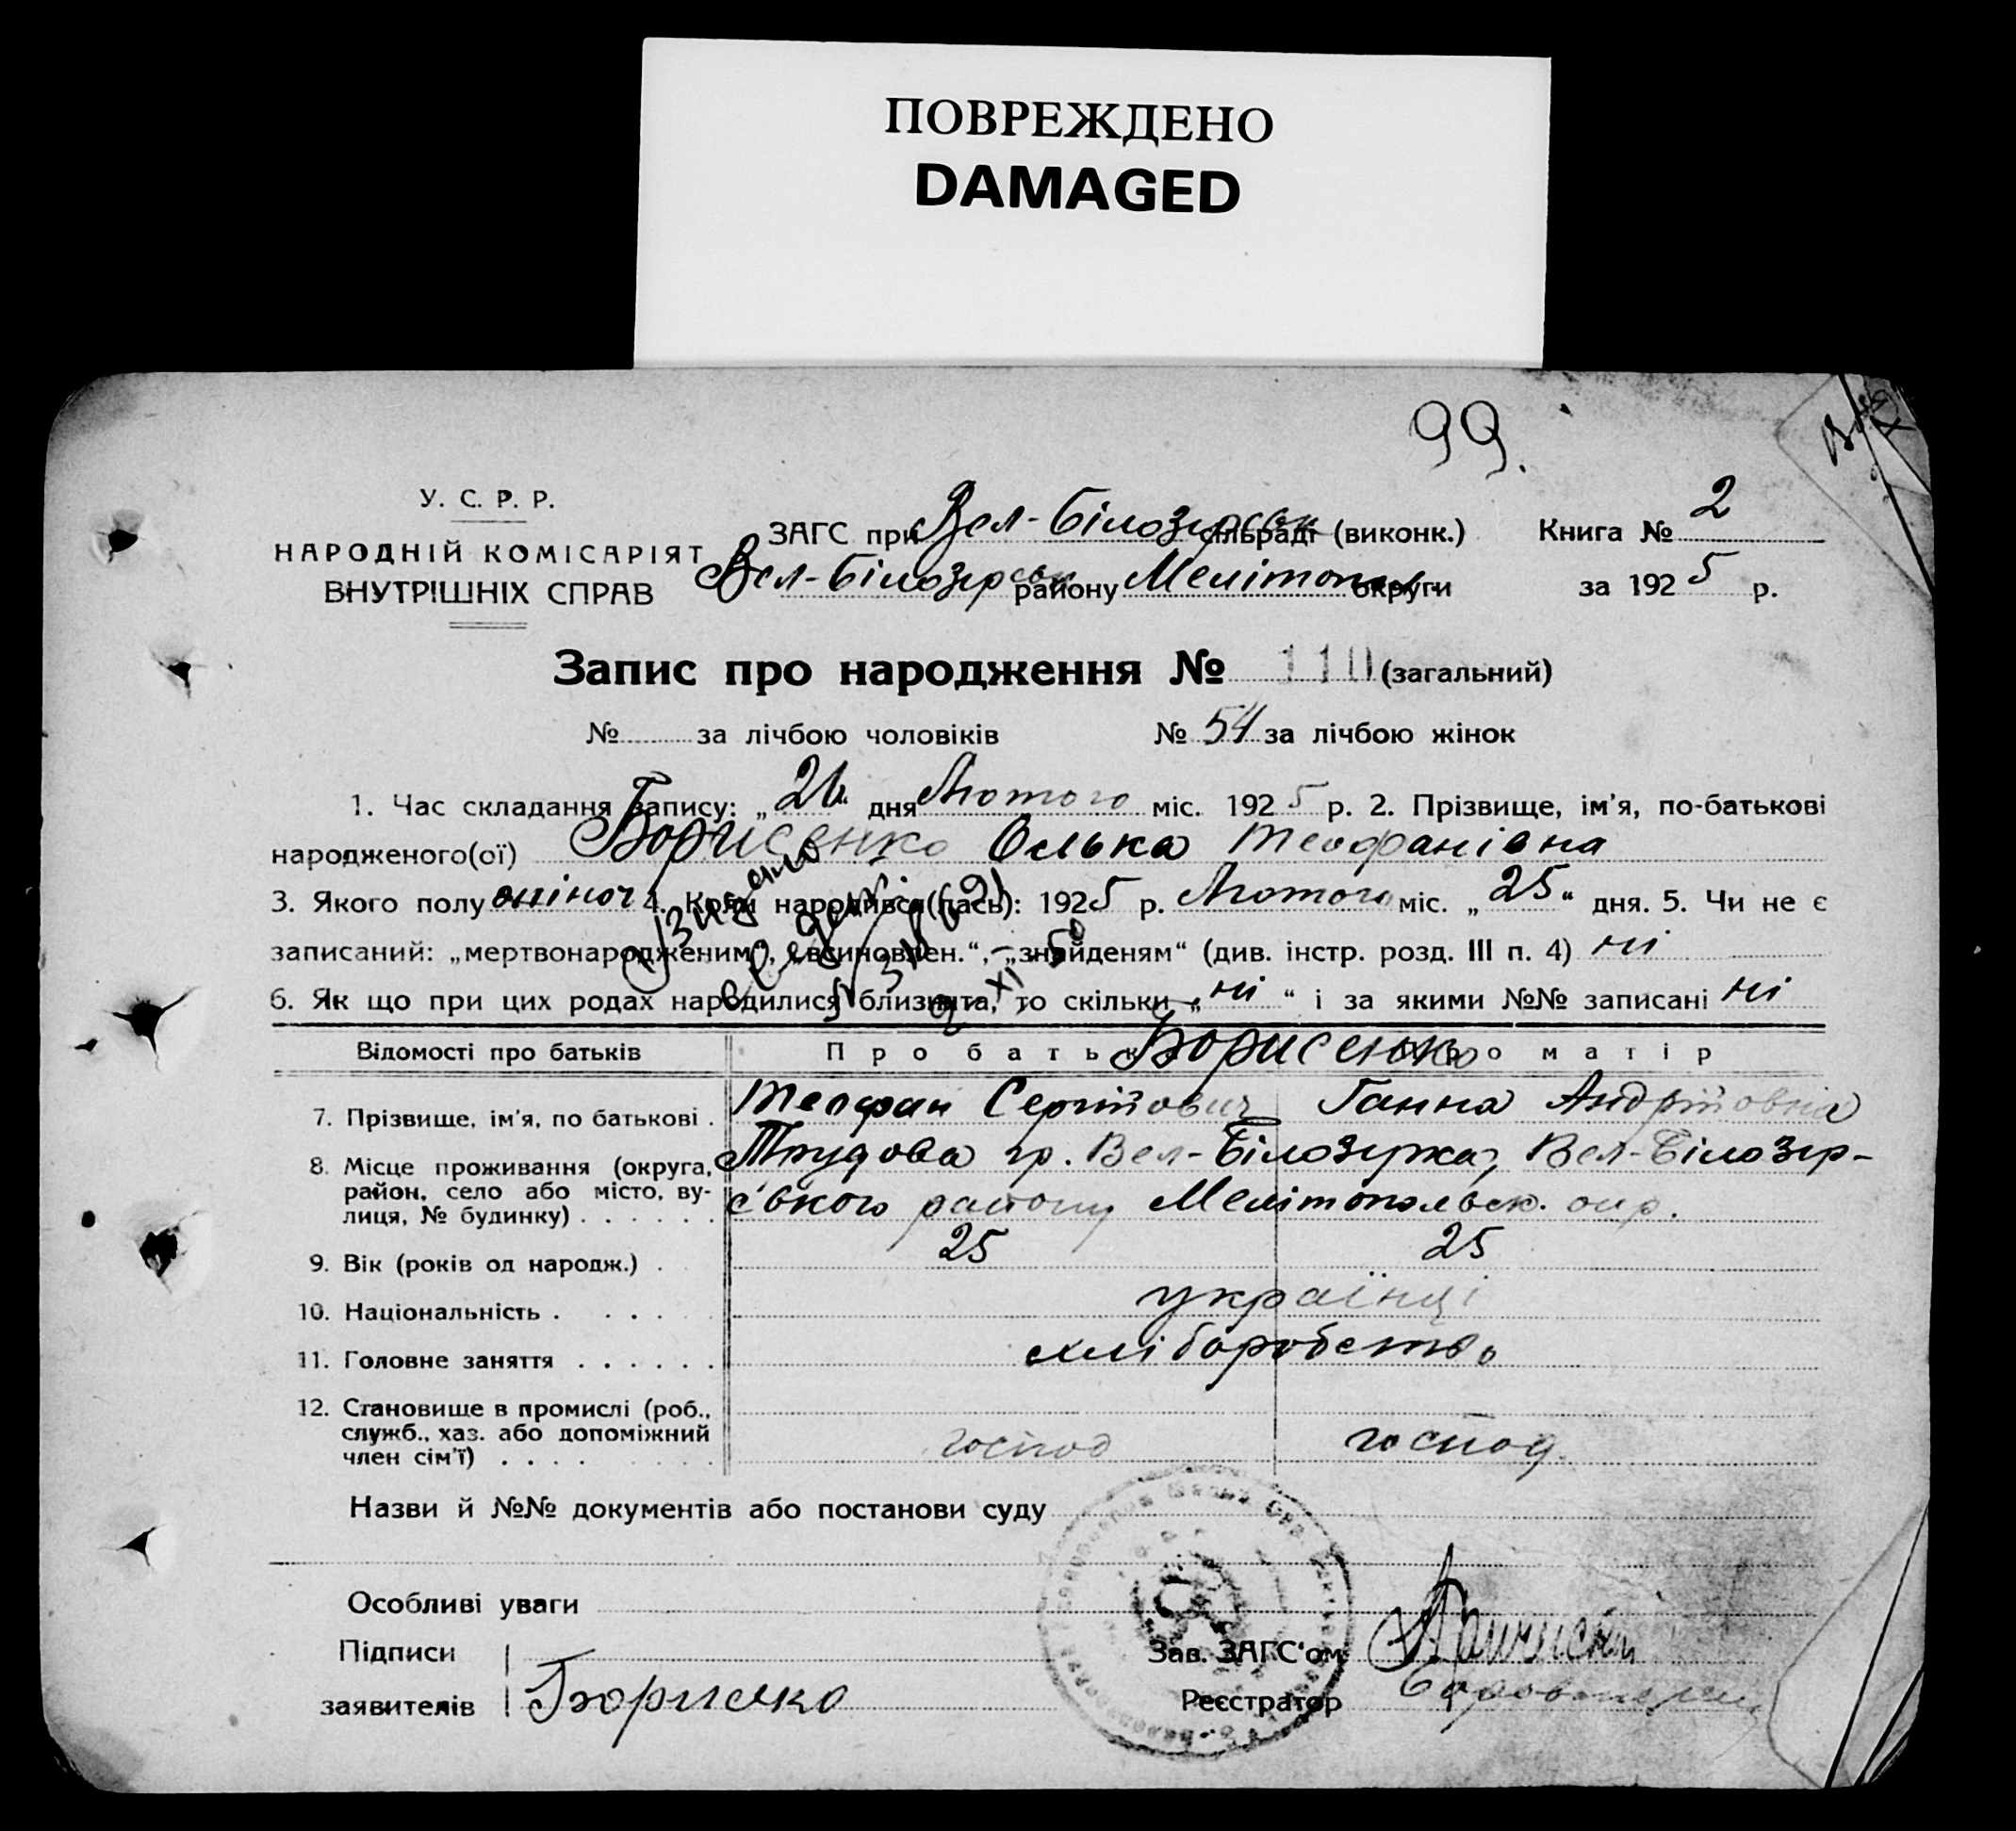 ПОВРЕЖДЕНО
DAMAGED
99.
У. С. Р. Р.
НАРОДНІЙ КОМІСАРІЯТ
ВНУТРІШНІХ СПРАВ
ЗАГС при Вел-Білозірськ сільраді (виконк.) Книга № 2
Вел-Білозірськ району Мелітопол. округи за 1925 р.
Запис про народження № 110 (загальний)
№ за лічбою чоловіків № 54 за лічбою жінок
1. Час складання запису: „26“ дня Лютого міс. 1925 р. 2. Прізвище, ім'я, по-батькові
народженого(ої) Борисенко Олька Теофанівна
3. Якого полу жіноч 4. Коли народився(лась): 1925 р. Лютого міс. „25“ дня. 5. Чи не є
записаний: „мертвонародженим“, „всиновлен.“, „знайденям“ (див. інстр. розд. III п. 4) ні
6. Як що при цих родах народилися близнята, то скільки „ні“ і за якими №№ записані ні
Відомості про батьків Про батька Про матір
Борисенко
7. Прізвище, ім'я, по батькові . Теофан Сергійович Ганна Андріївна
8. Місце проживання (округа, Трудова гр. Вел-Білозірка, Вел-Білозір-
район, село або місто, ву- ського району Мелітопольск. окр.
лиця, № будинку) . . . . . .
9. Вік (років од народж.) . 25 25
10. Національність . . . . . українці
11. Головне заняття . . . . . . хліборобство
12. Становище в промислі (роб.,
служб., хаз. або допоміжний господ господ.
член сім'ї) . . . .
Назви й №№ документів або постанови суду
Особливі уваги
Підписи Зав. ЗАГС'ом
заявителів Борисенко Реєстратор